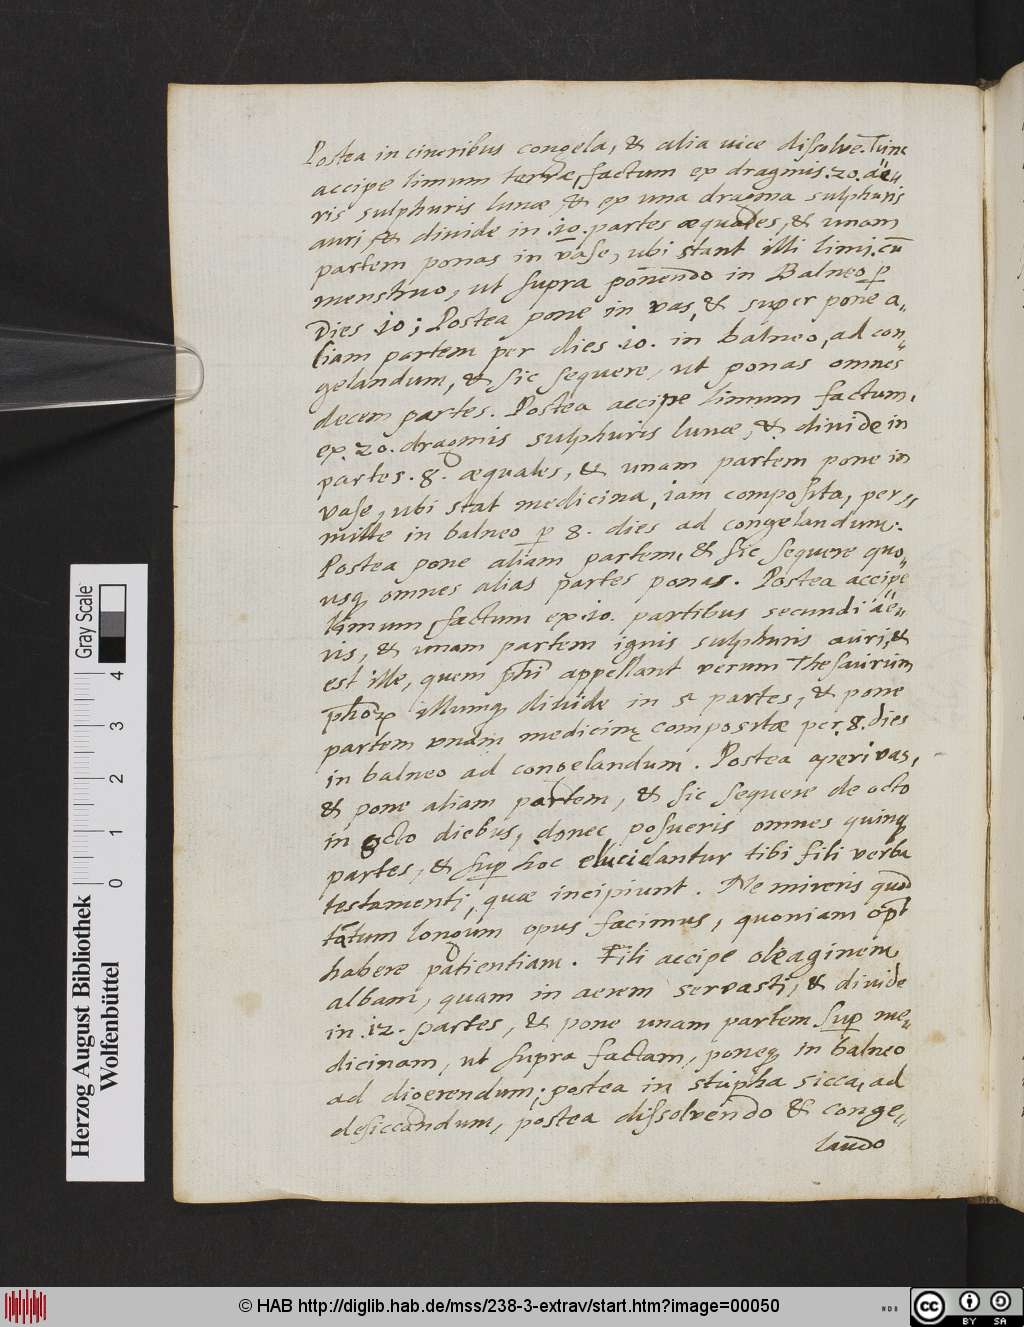 Postea in cineribus congela, & alia uice dissolve. Tunc
accipe limum terræ, factum ex dragmis .20. aë„
ris sulphuris lunæ & ex una dragma sulphuris
auri & divide in .10. partes æquales, & unam
partem ponas in vase, ubi stant illi limi, cū
menstruo, ut supra ponendo in Balneo p̱
Dies .10; Postea pone in vas, & super pone a„
liam partem per dies .10. in balneo, ad con„
gelandum, & sic sequere, ut ponas omnes
decem partes. Postea accipe limum factum,
ex .20. dragmis sulphuris lunæ, & divide in
partes .8. æquales, & unam partem pone in
vase, ubi stat medicina, iam composita, per„
mitte in balneo p̱ 8. dies ad congelandum:.
Postea pone aliam partem, & sic sequere quo„
usq; omnes alias partes ponas. Postea accipe
limum factum ex .10. partibus secundi aë„
ris, & unam partem ignis sulphuris auri, &
est ille, quem phī appellant verum Thesaurum
phoꝝ illumq; divide in 5 partes, & pone
partem unam medicinę compositæ per .8. dies
in balneo ad congelandum. Postea aperi vas,
& pone aliam partem, & sic sequere de octo
in octo diebus, donec posueris omnes quinq;
partes, & sup̱ hoc elucidantur tibi fili verba
testamenti, quæ incipiunt. Ne mireris quod
totum longum opus facimus, quoniam opt̄
habere patientiam. Fili accipe oleaginem
albam, quam in aerem servasti, & divide
in .12. partes, & pone unam partem sup̱ me„
dicinam, ut supra factam, poneq; in balneo
ad digerendum; postea in stupha sicca, ad
desiccandum, postea dissolvendo & conge„
lando
Gray Scale
0 1 2 3 4
Herzog August Bibliothek
Wolfenbüttel
© HAB http://diglib.hab.de/mss/238-3-extrav/start.htm?image=00050
cc BY SA